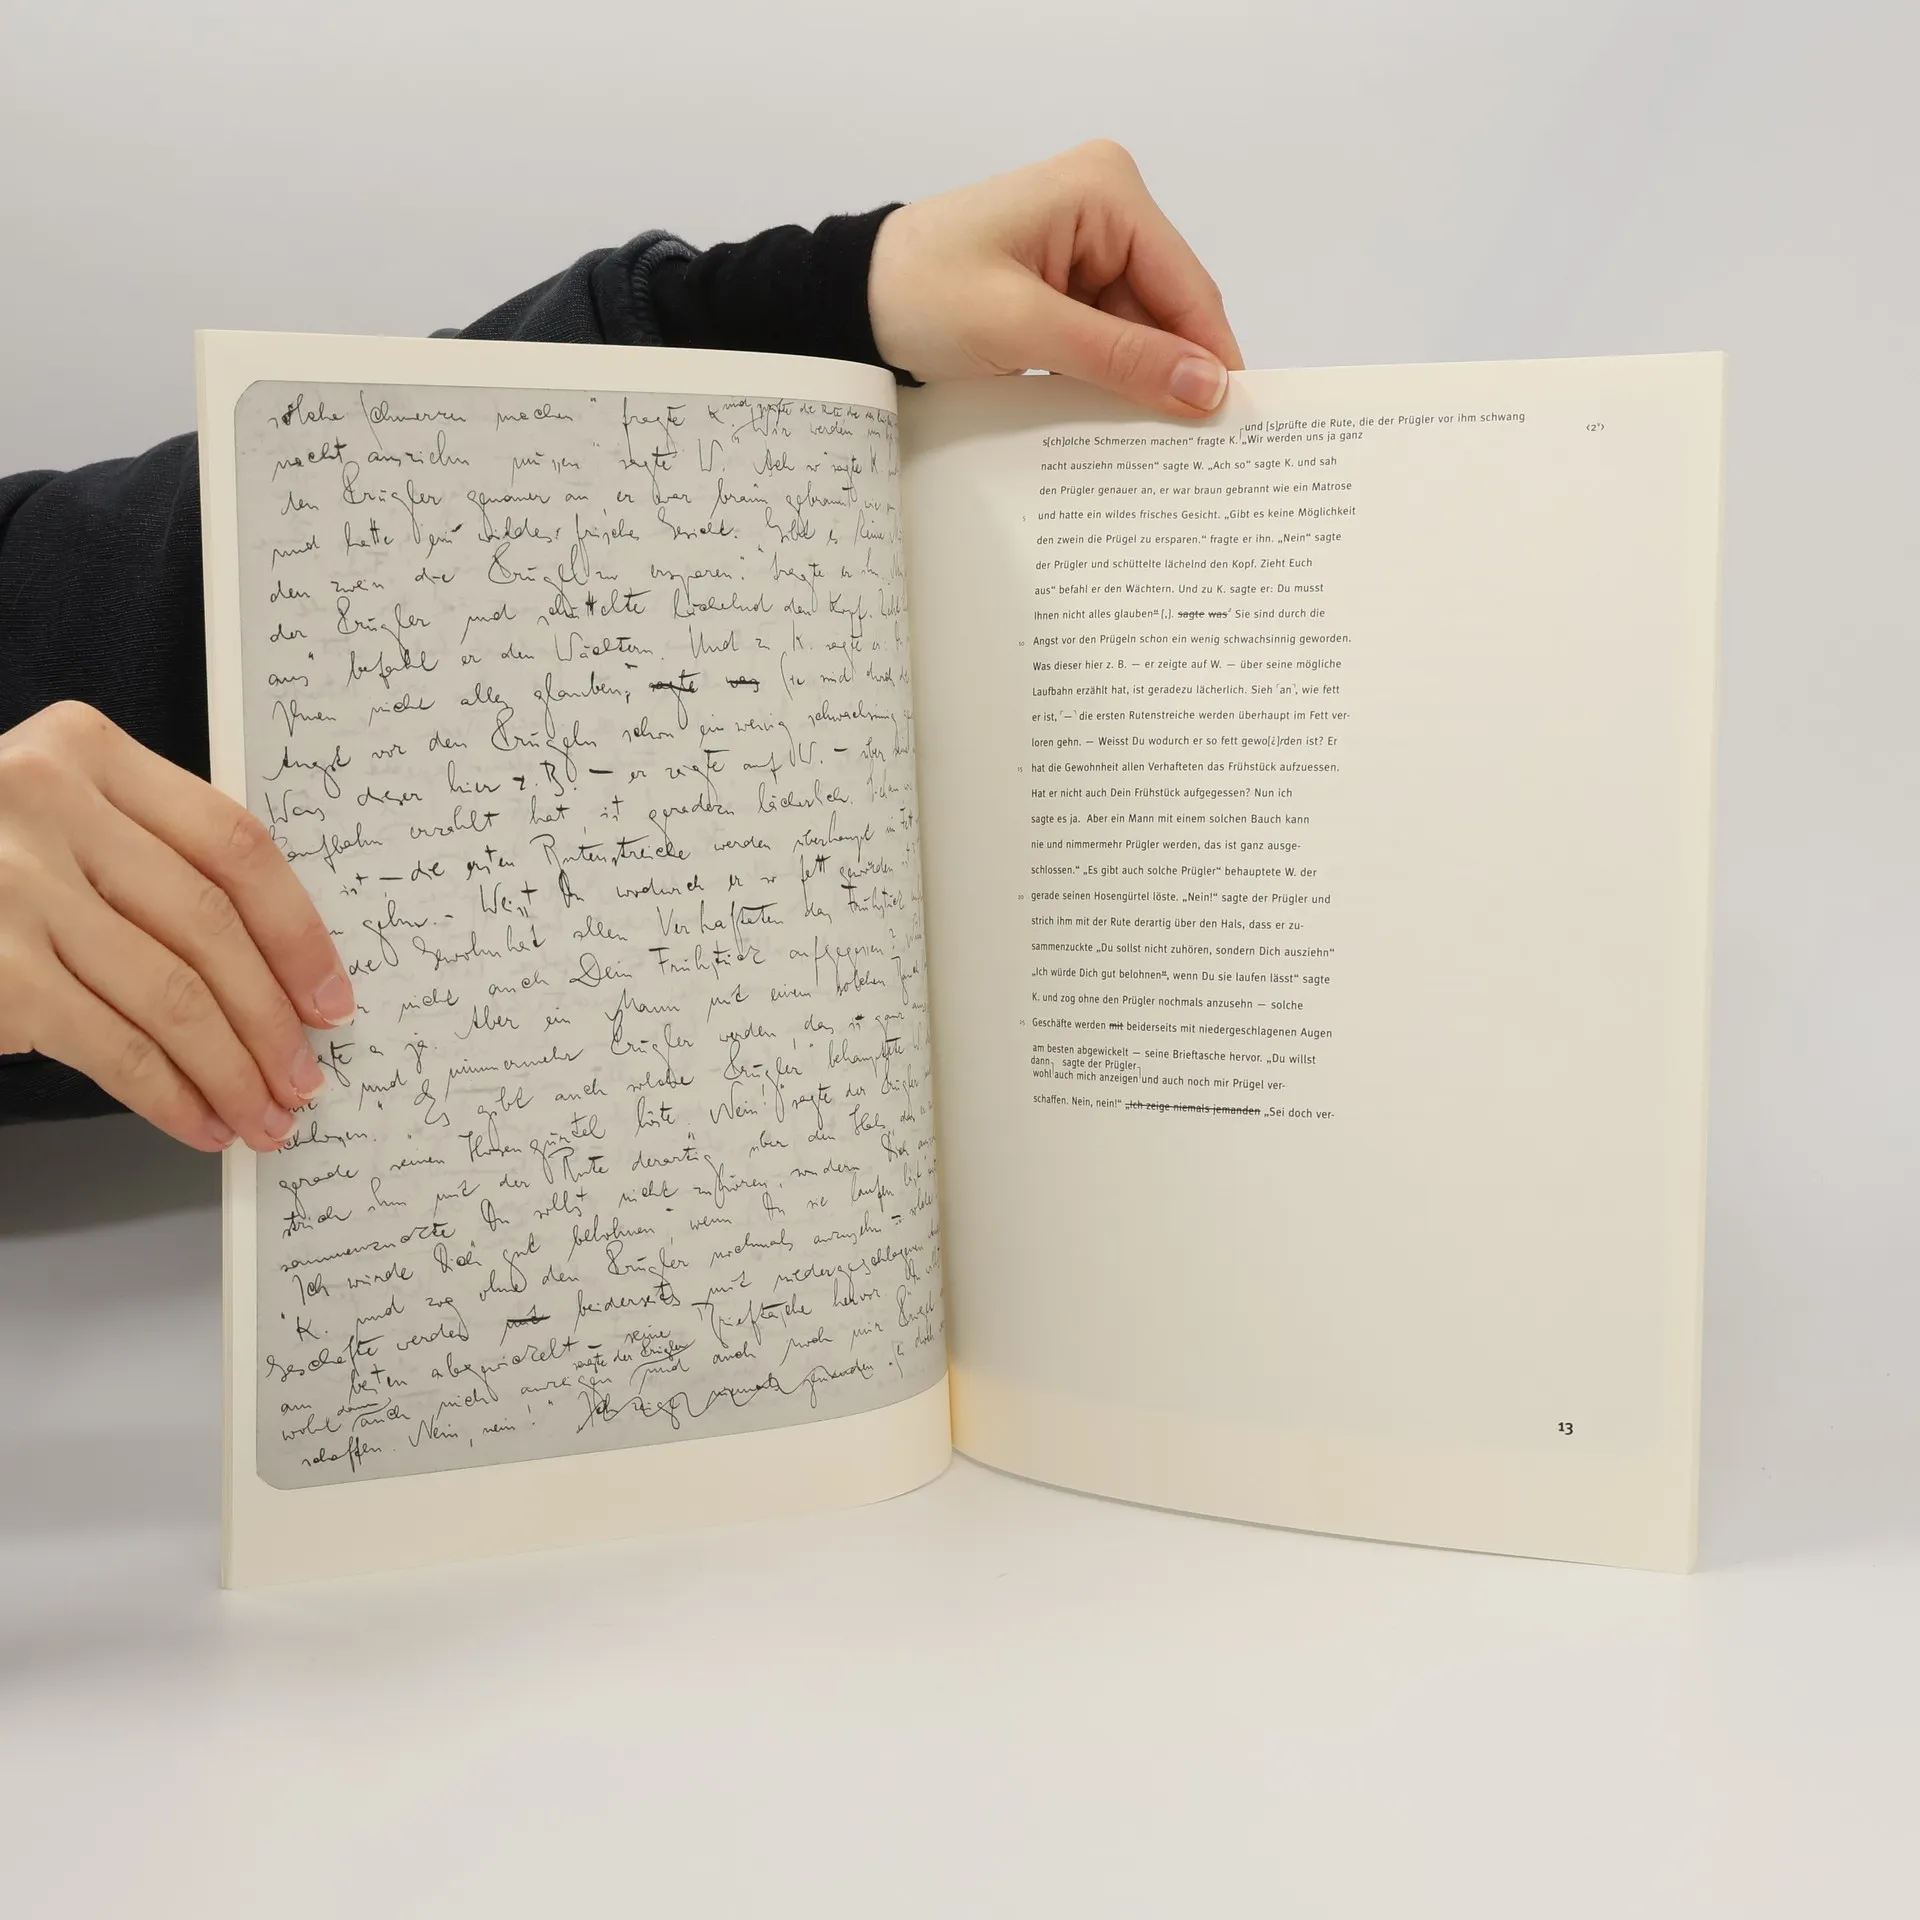 solche Schmerzen machen" fragte K. und prüfte die Rute, die der
"Wir werden uns
nackt ausziehn müssen" sagte W. Ach so" sagte K.
den Prügler genauer an, er war braun gebrannt wie
und hatte ein wildes frisches Gesicht. "Gibt es keine
den zwein die Prügel zu ersparen." fragte er ihn.
der Prügler und schüttelte lächelnd den Kopf. Zieht
aus" befahl er den Wächtern. Und zu K. sagte er:
Ihnen nicht alles glauben, sagte was Sie sind durch die
Angst vor den Prügeln schon ein wenig schwachsinnig
Was dieser hier z. B. — er zeigte auf W. — über seine
Laufbahn erzählt hat, ist geradezu lächerlich. Sieh an
ist — die ersten Rutenstreiche werden überhaupt im Fett
gehn. — Weisst Du wodurch er so fett geworden ist?
die Gewohnheit allen Verhafteten das Frühstück
nicht auch Dein Frühstück aufgegessen?
ja. Aber ein Mann mit einem solchen Bauch
und nimmermehr Prügler werden, das ist ganz
schlossen." "Es gibt auch solche Prügler" behauptete W.
gerade seinen Hosengürtel löste. Nein!" sagte der Prügler
strich ihm mit der Rute derartig über den Hals, dass er
sammenzuckte Du sollst nicht zuhören, sondern Dich
"Ich würde Dich gut belohnen, wenn Du sie laufen lässt"
K. und zog ohne den Prügler nochmals anzusehn — solche
Geschäfte werden mit beiderseits mit niedergeschlagenen
am besten abgewickelt — seine Brieftasche hervor. "Du willst
dann sagte der Prügler
wohl auch mich anzeigen und auch noch mir Prügel
schaffen. Nein, nein!" "Ich zeige niemals jemanden
und [s]prüfte die Rute, die der Prügler vor ihm schwang
‹2ᵛ›
s[ch]olche Schmerzen machen“ fragte K. „Wir werden uns ja ganz
nackt ausziehn müssen“ sagte W. „Ach so“ sagte K. und sah
den Prügler genauer an, er war braun gebrannt wie ein Matrose
5 und hatte ein wildes frisches Gesicht. „Gibt es keine Möglichkeit
den zwein die Prügel zu ersparen.“ fragte er ihn. „Nein“ sagte
der Prügler und schüttelte lächelnd den Kopf. Zieht Euch
aus“ befahl er den Wächtern. Und zu K. sagte er: Du musst
Ihnen nicht alles glauben“[,]. sagte was Sie sind durch die
10 Angst vor den Prügeln schon ein wenig schwachsinnig geworden.
Was dieser hier z. B. — er zeigte auf W. — über seine mögliche
Laufbahn erzählt hat, ist geradezu lächerlich. Sieh ⌈an⌉, wie fett
er ist, ⌈—⌉ die ersten Rutenstreiche werden überhaupt im Fett ver-
loren gehn. — Weisst Du wodurch er so fett gewo[¿]rden ist? Er
15 hat die Gewohnheit allen Verhafteten das Frühstück aufzuessen.
Hat er nicht auch Dein Frühstück aufgegessen? Nun ich
sagte es ja. Aber ein Mann mit einem solchen Bauch kann
nie und nimmermehr Prügler werden, das ist ganz ausge-
schlossen.“ „Es gibt auch solche Prügler“ behauptete W. der
20 gerade seinen Hosengürtel löste. „Nein!“ sagte der Prügler und
strich ihm mit der Rute derartig über den Hals, dass er zu-
sammenzuckte „Du sollst nicht zuhören, sondern Dich ausziehn“
„Ich würde Dich gut belohnen“, wenn Du sie laufen lässt“ sagte
K. und zog ohne den Prügler nochmals anzusehn — solche
25 Geschäfte werden mit beiderseits mit niedergeschlagenen Augen
am besten abgewickelt — seine Brieftasche hervor. „Du willst
dann⌉ sagte der Prügler⌉
wohl auch mich anzeigen und auch noch mir Prügel ver-
schaffen. Nein, nein!“ „Ich zeige niemals jemanden „Sei doch ver-
13